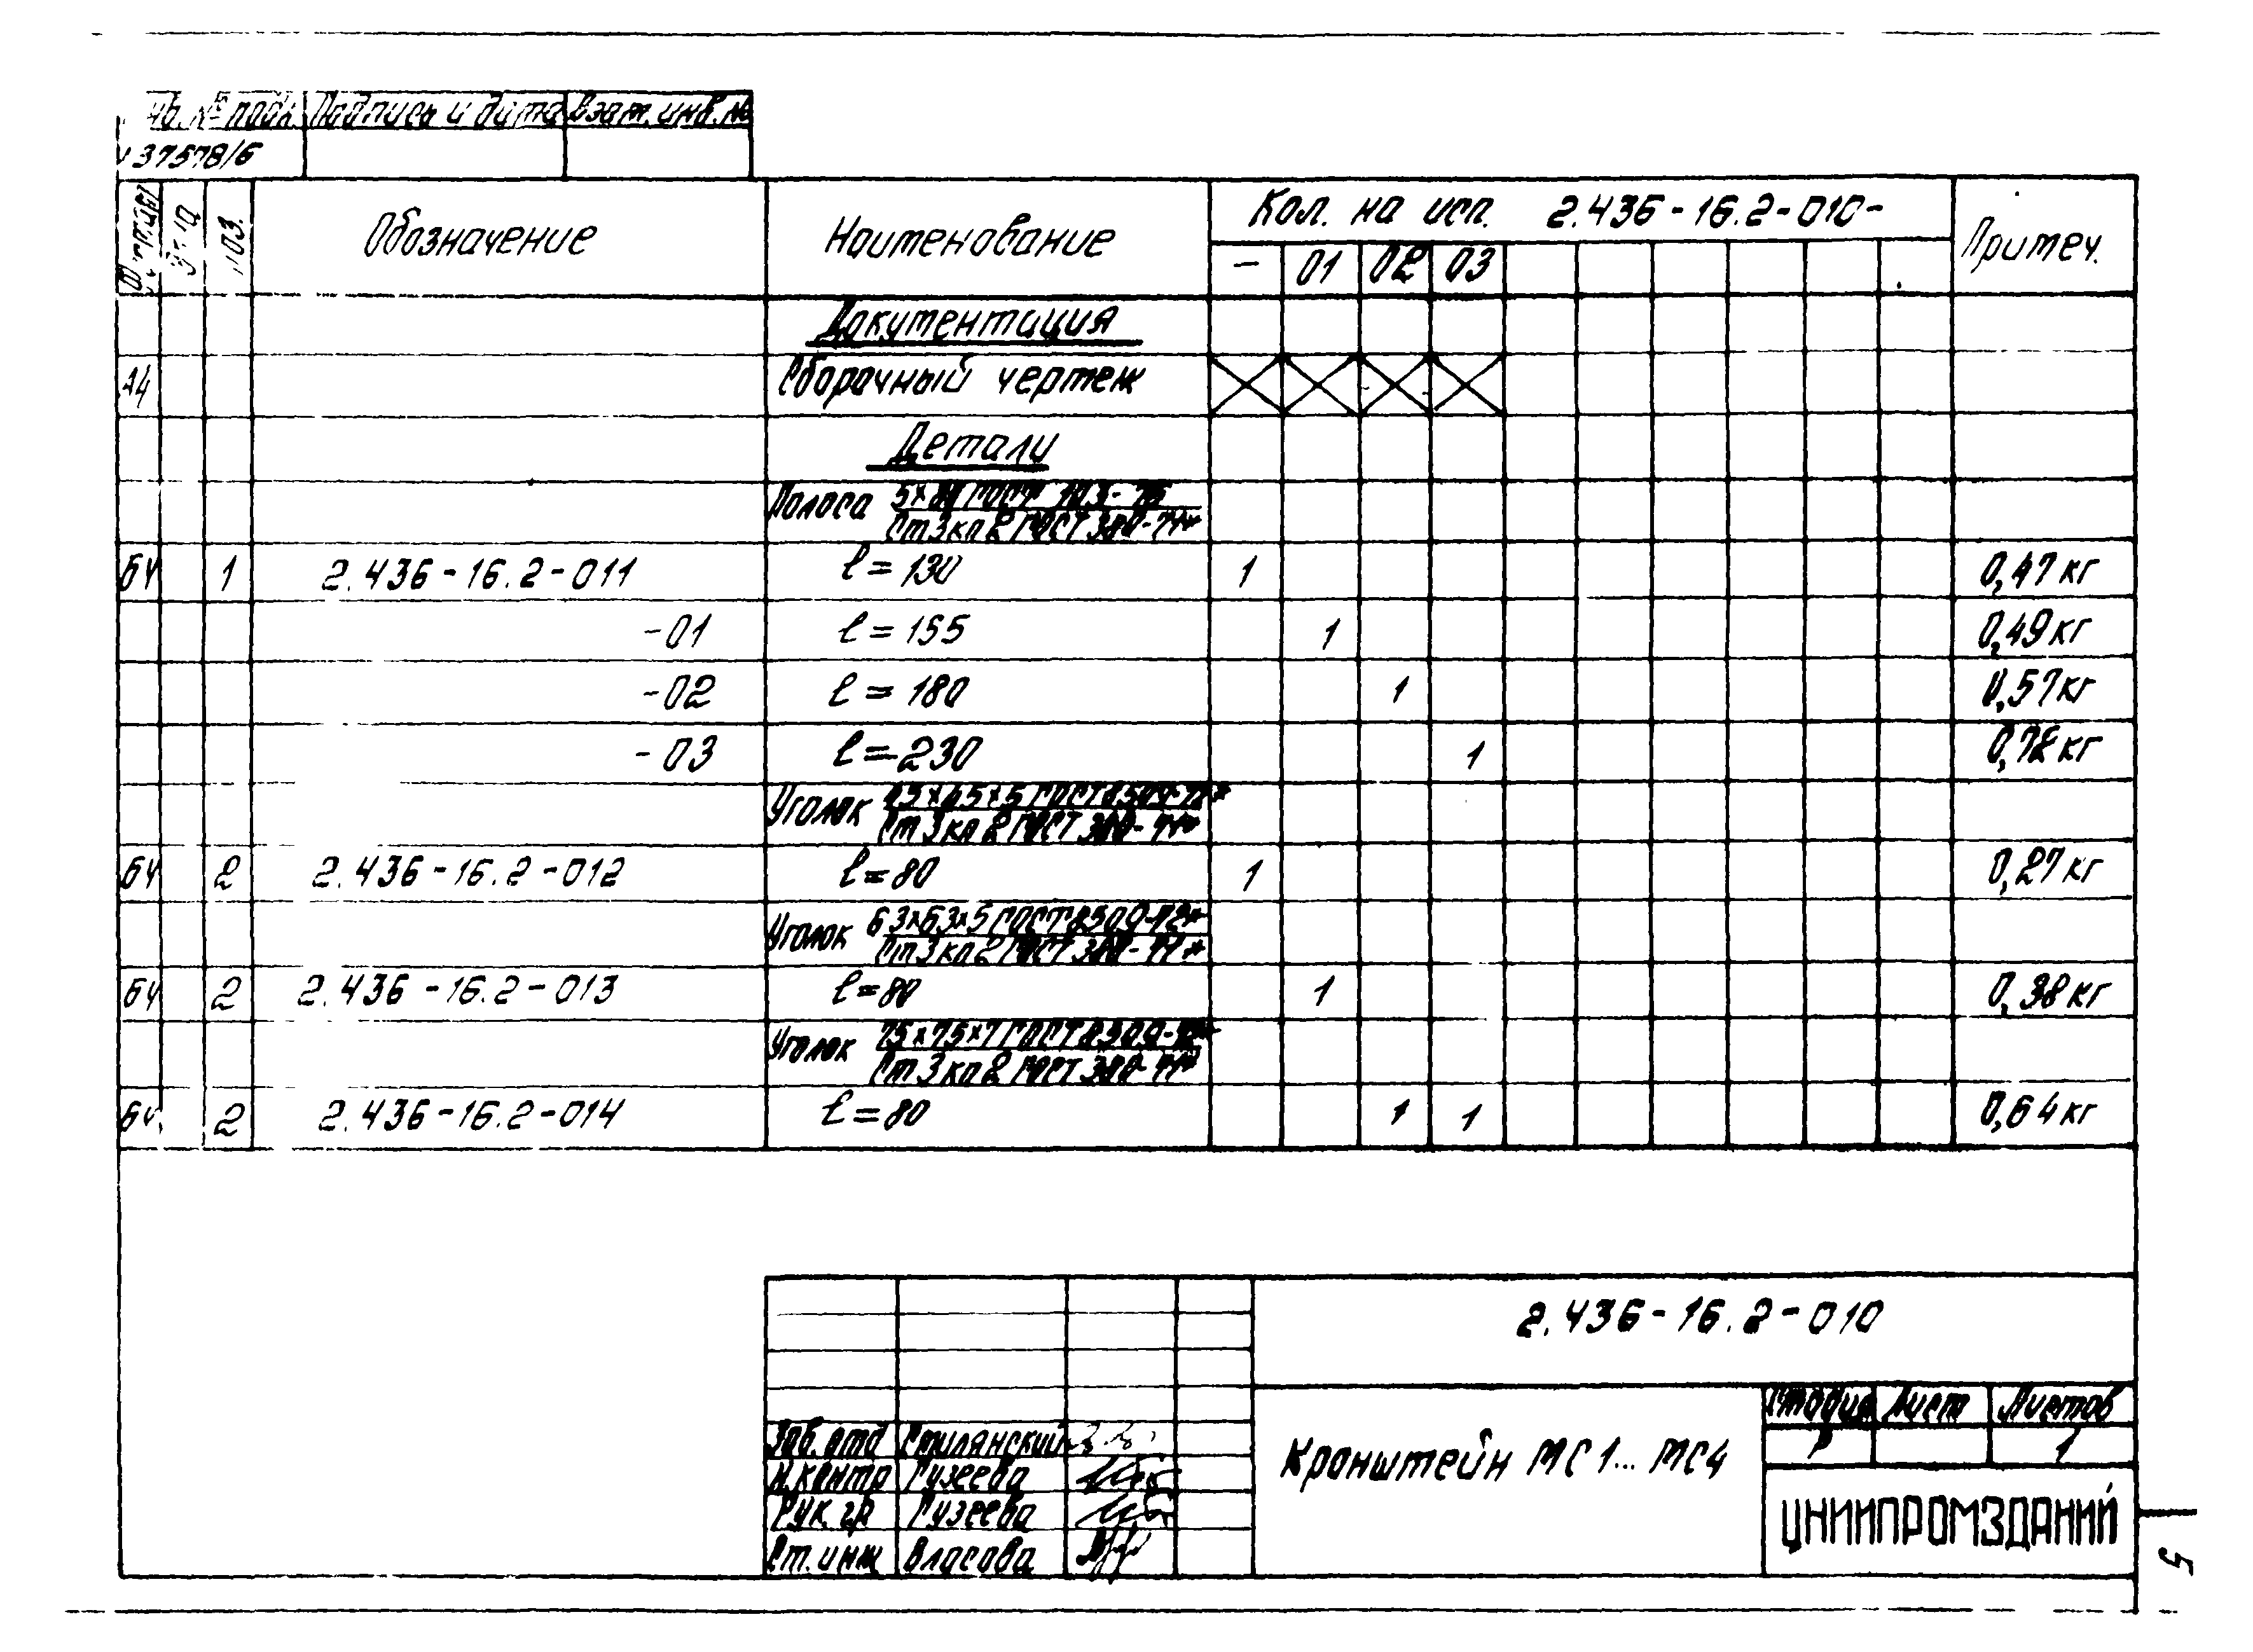 Инв. № подл. Подпись и дата Взам. инв. №
37578/6
Формат Зона Поз. Обозначение Наименование Кол. на исп. 2.436-16.2-010- Примеч.
– 01 02 03
Документация
А4 Сборочный чертеж
Детали
Полоса ГОСТ 103-76
Ст3кп2 ГОСТ 380-71*
БЧ 1 2.436-16.2-011 ℓ=130 1 0,47кг
-01 ℓ=155 1 0,49кг
-02 ℓ=180 1 0,57кг
-03 ℓ=230 1 0,72кг
Уголок 45×45×5 ГОСТ 8509-72*
Ст3кп2 ГОСТ 380-71*
БЧ 2 2.436-16.2-012 ℓ=80 1 0,27кг
Уголок 63×63×5 ГОСТ 8509-72*
Ст3кп2 ГОСТ 380-71*
БЧ 2 2.436-16.2-013 ℓ=80 1 0,38кг
Уголок 75×75×7 ГОСТ 8509-72*
Ст3кп2 ГОСТ 380-71*
БЧ. 2 2.436-16.2-014 ℓ=80 1 1 0,64кг
2.436-16.2-010
Зав. отд Смилянский
Н.контр Гузеева
Рук. гр Гузеева
Ст. инж Власова
Кронштейн МС1... МС4
Стадия Лист Листов
Р 1
ЦНИИПРОМЗДАНИЙ
5